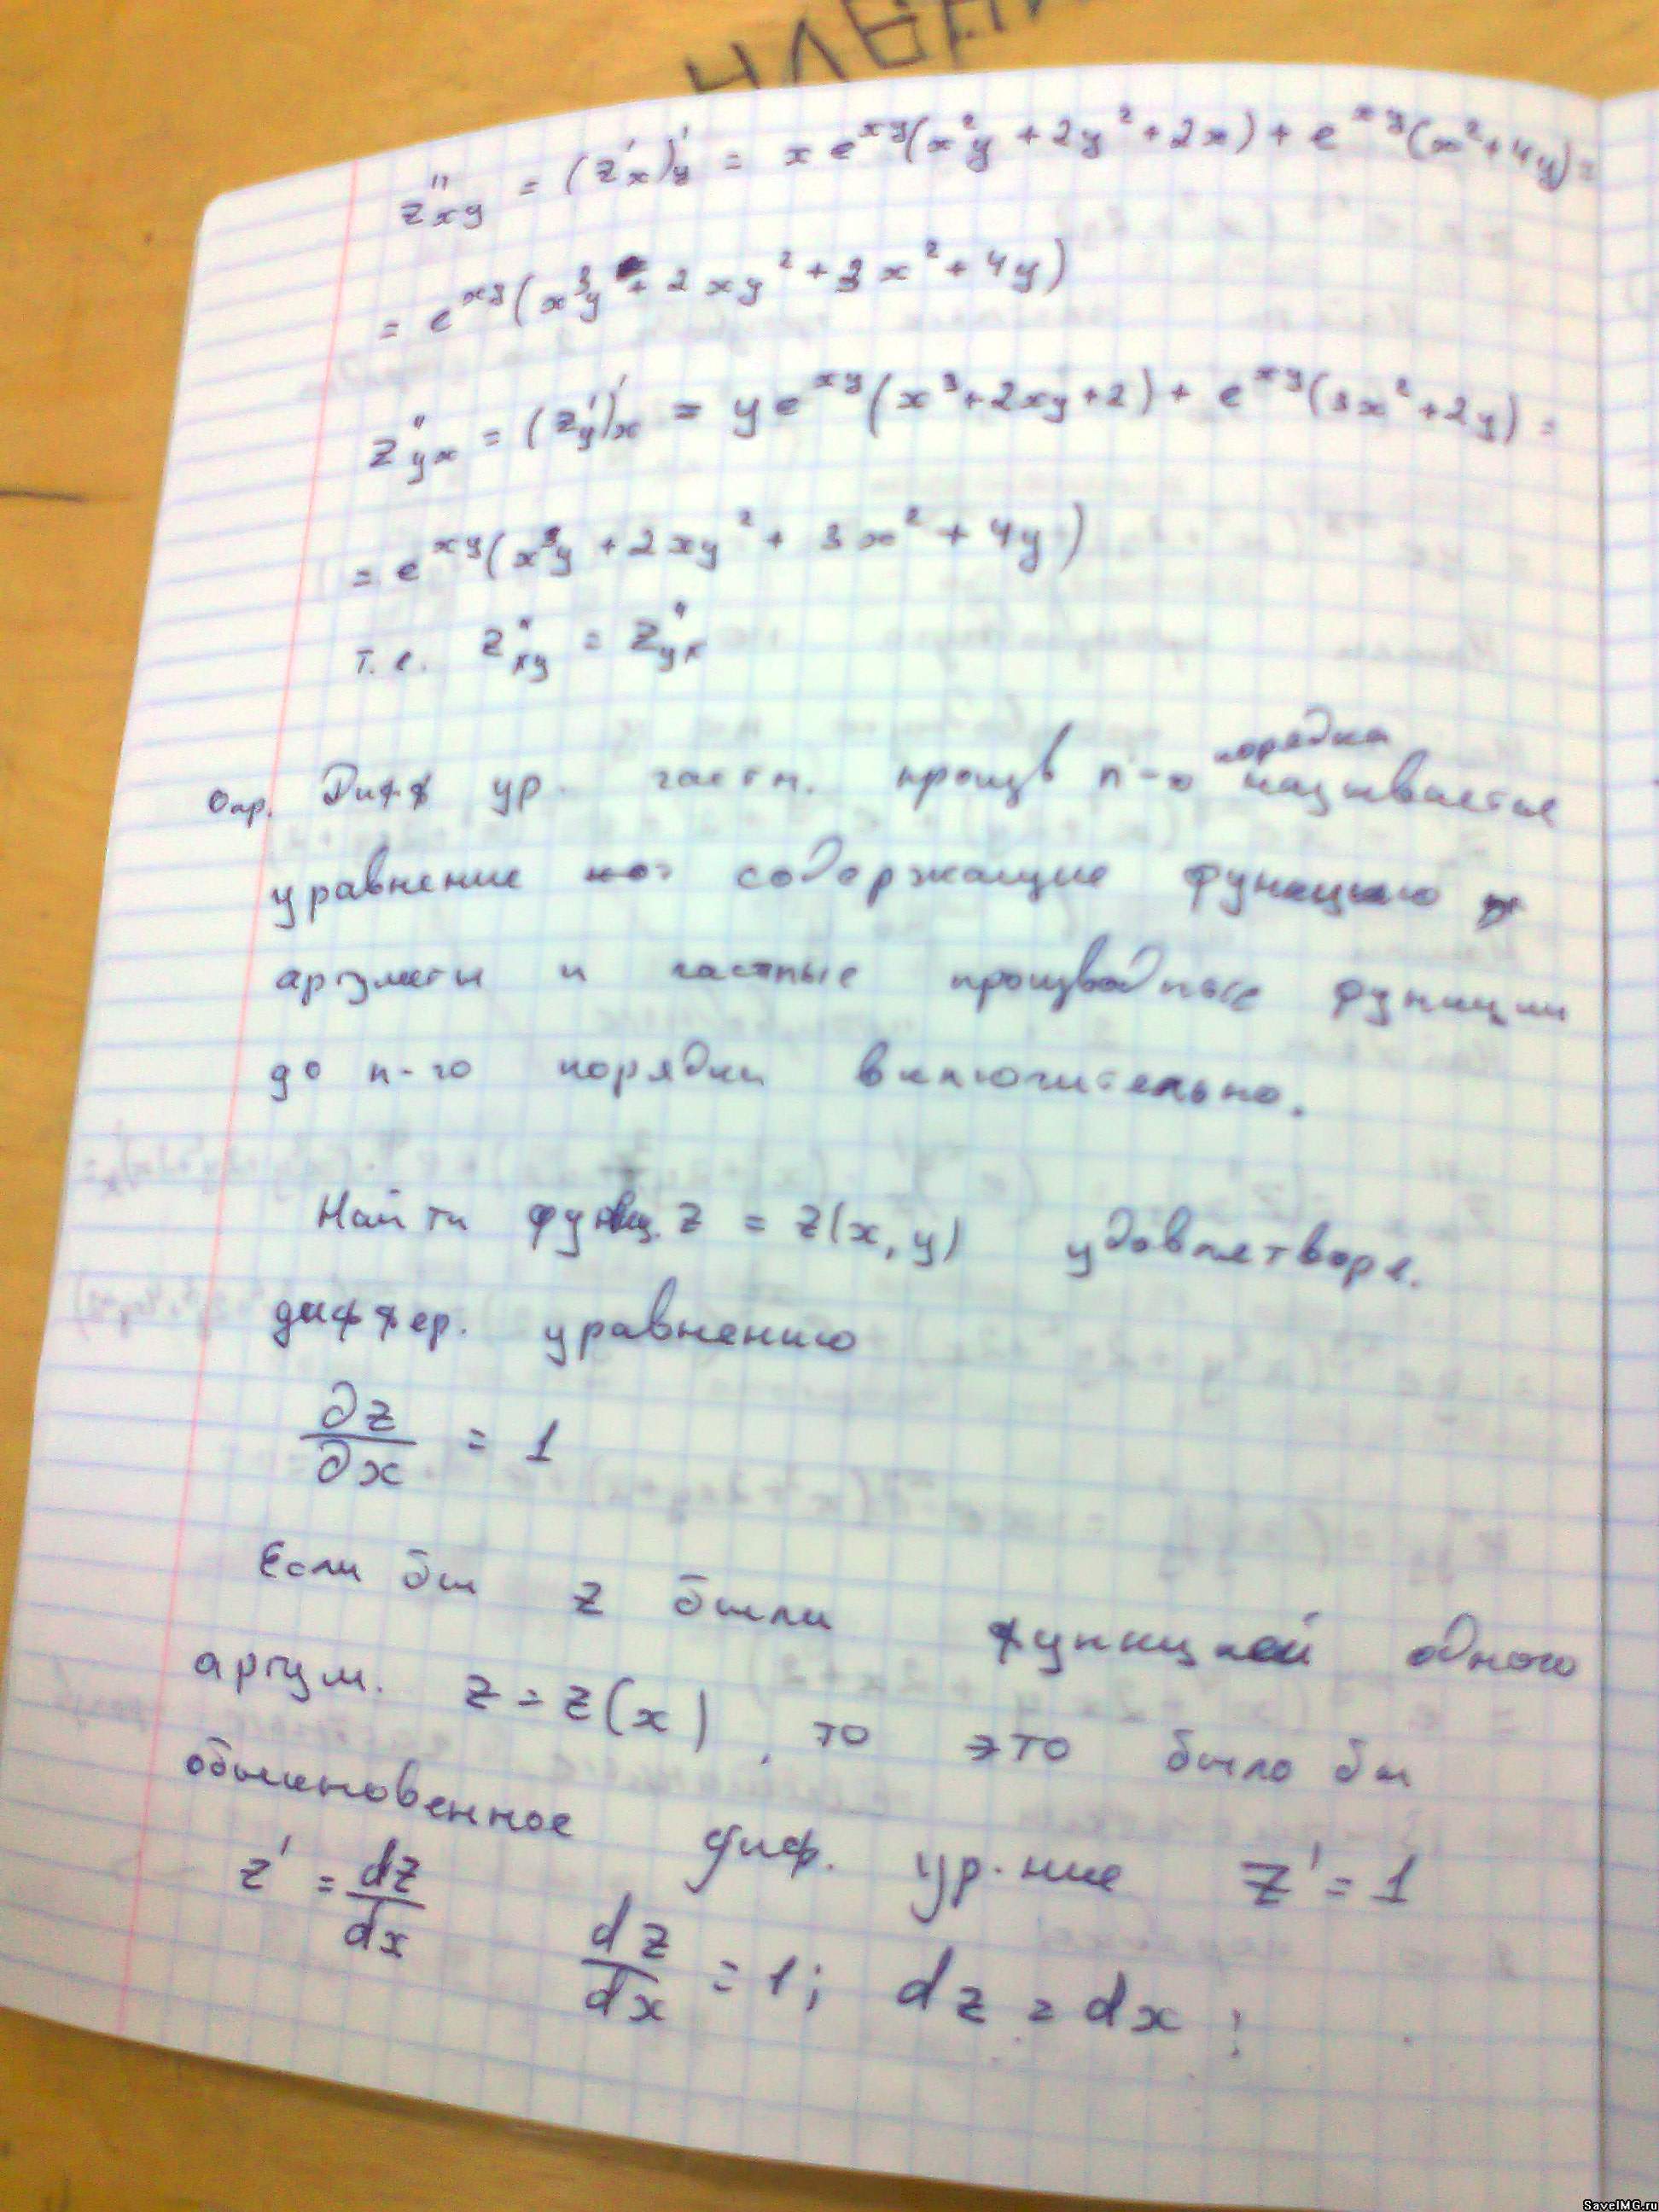 z''xy = (z'x)'y = x e^xy (x²y + 2y² + 2x) + e^xy (x² + 4y) =
= e^xy (x³y + 2xy² + 3x² + 4y)
z''yx = (z'y)'x = y e^xy (x³ + 2xy + 2) + e^xy (3x² + 2y) =
= e^xy (x³y + 2xy² + 3x² + 4y)
т.е. z''xy = z''yx
порядка
Опр. Дифф ур. частн. произв n-о называется
уравнение содержащие функцию
аргументы и частные производные функции
до n-го порядки включительно.
Найти функц. z = z(x, y) удовлетворе.
диффер. уравнению
∂z/∂x = 1
Если бы z были функцией одного
аргум. z = z(x), то это было бы
обыкновенное диф. ур-ние z' = 1
z' = dz/dx dz/dx = 1; dz = dx;
SaveIMG.ru